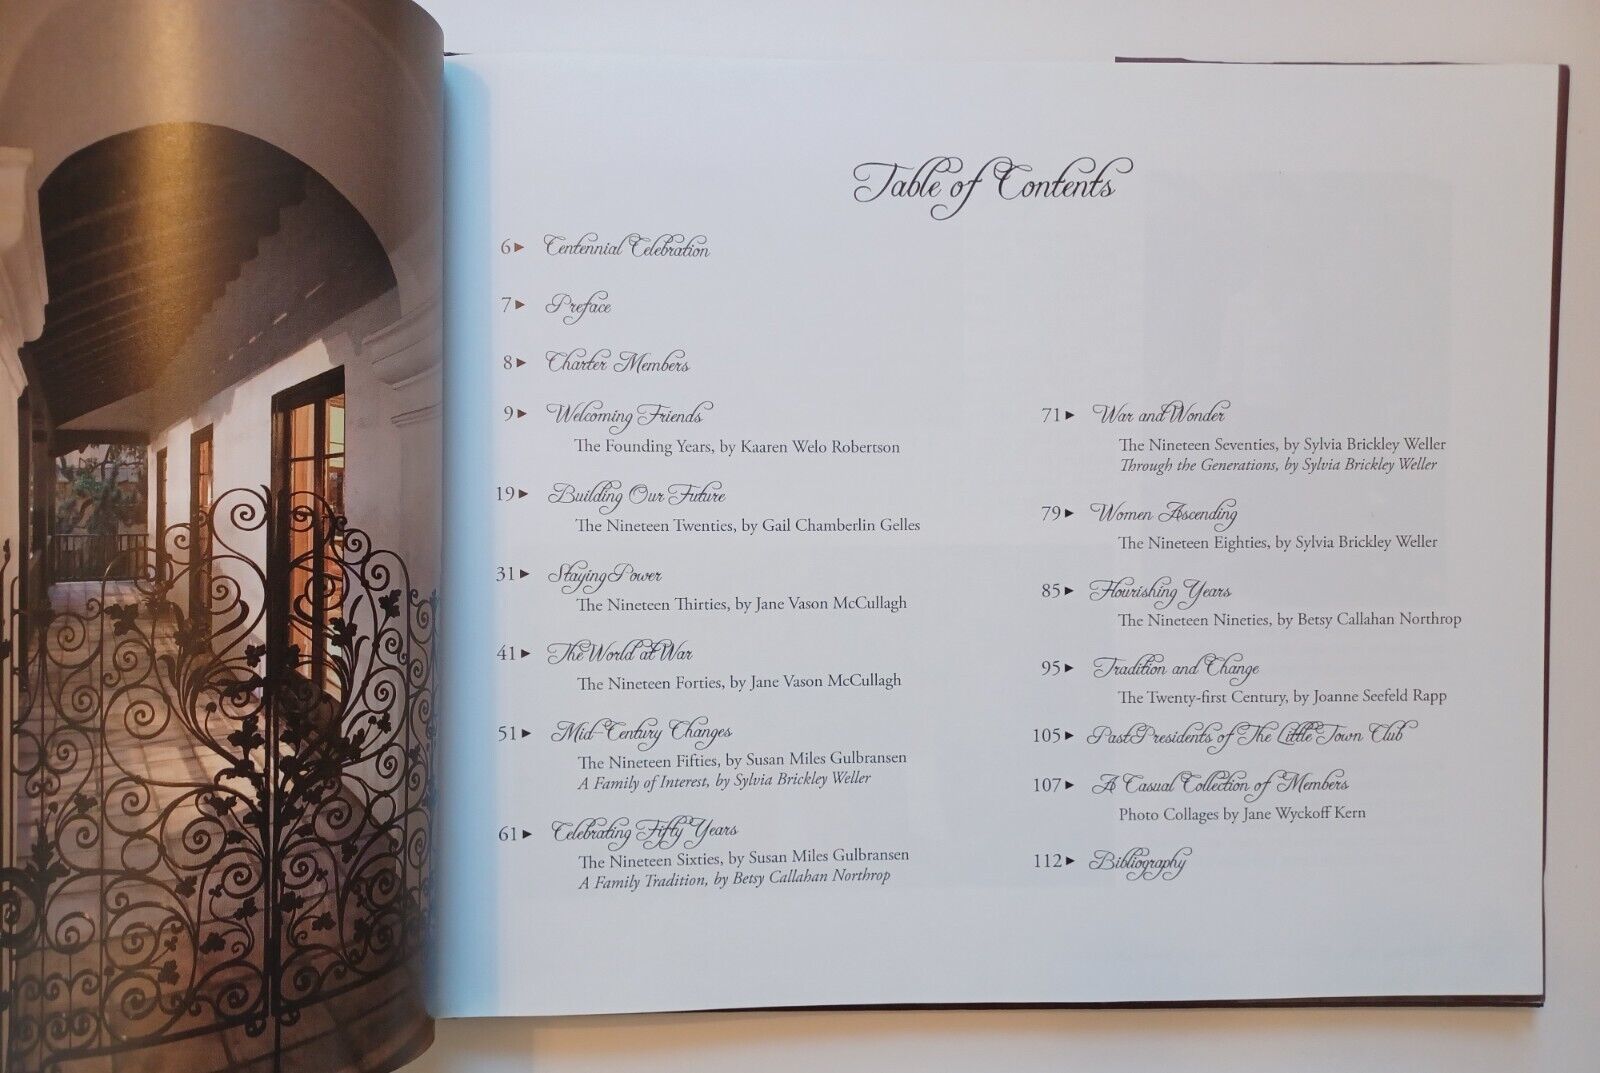 Table of Contents
6▶ Centennial Celebration
7▶ Preface
8▶ Charter Members
9▶ Welcoming Friends
The Founding Years, by Kaaren Welo Robertson
19▶ Building Our Future
The Nineteen Twenties, by Gail Chamberlin Gelles
31▶ Staying Power
The Nineteen Thirties, by Jane Vason McCullagh
41▶ The World at War
The Nineteen Forties, by Jane Vason McCullagh
51▶ Mid-Century Changes
The Nineteen Fifties, by Susan Miles Gulbransen
A Family of Interest, by Sylvia Brickley Weller
61▶ Celebrating Fifty Years
The Nineteen Sixties, by Susan Miles Gulbransen
A Family Tradition, by Betsy Callahan Northrop
71▶ War and Wonder
The Nineteen Seventies, by Sylvia Brickley Weller
Through the Generations, by Sylvia Brickley Weller
79▶ Women Ascending
The Nineteen Eighties, by Sylvia Brickley Weller
85▶ Flourishing Years
The Nineteen Nineties, by Betsy Callahan Northrop
95▶ Tradition and Change
The Twenty-first Century, by Joanne Seefeld Rapp
105▶ Past Presidents of The Little Town Club
107▶ A Casual Collection of Members
Photo Collages by Jane Wyckoff Kern
112▶ Bibliography